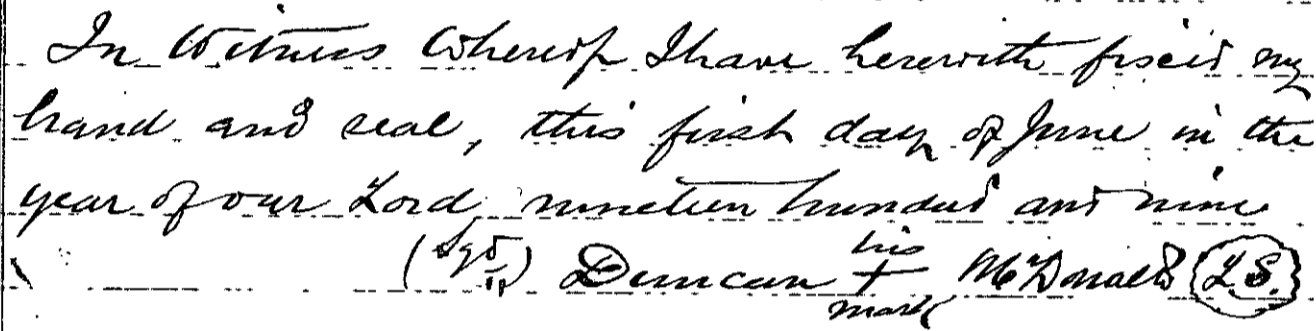 In Witness Whereof I have herewith fixed my
hand and seal, this first day of June in the
year of our Lord nineteen hundred and nine
(Sgd) Duncan his + mark McDonald L.S.